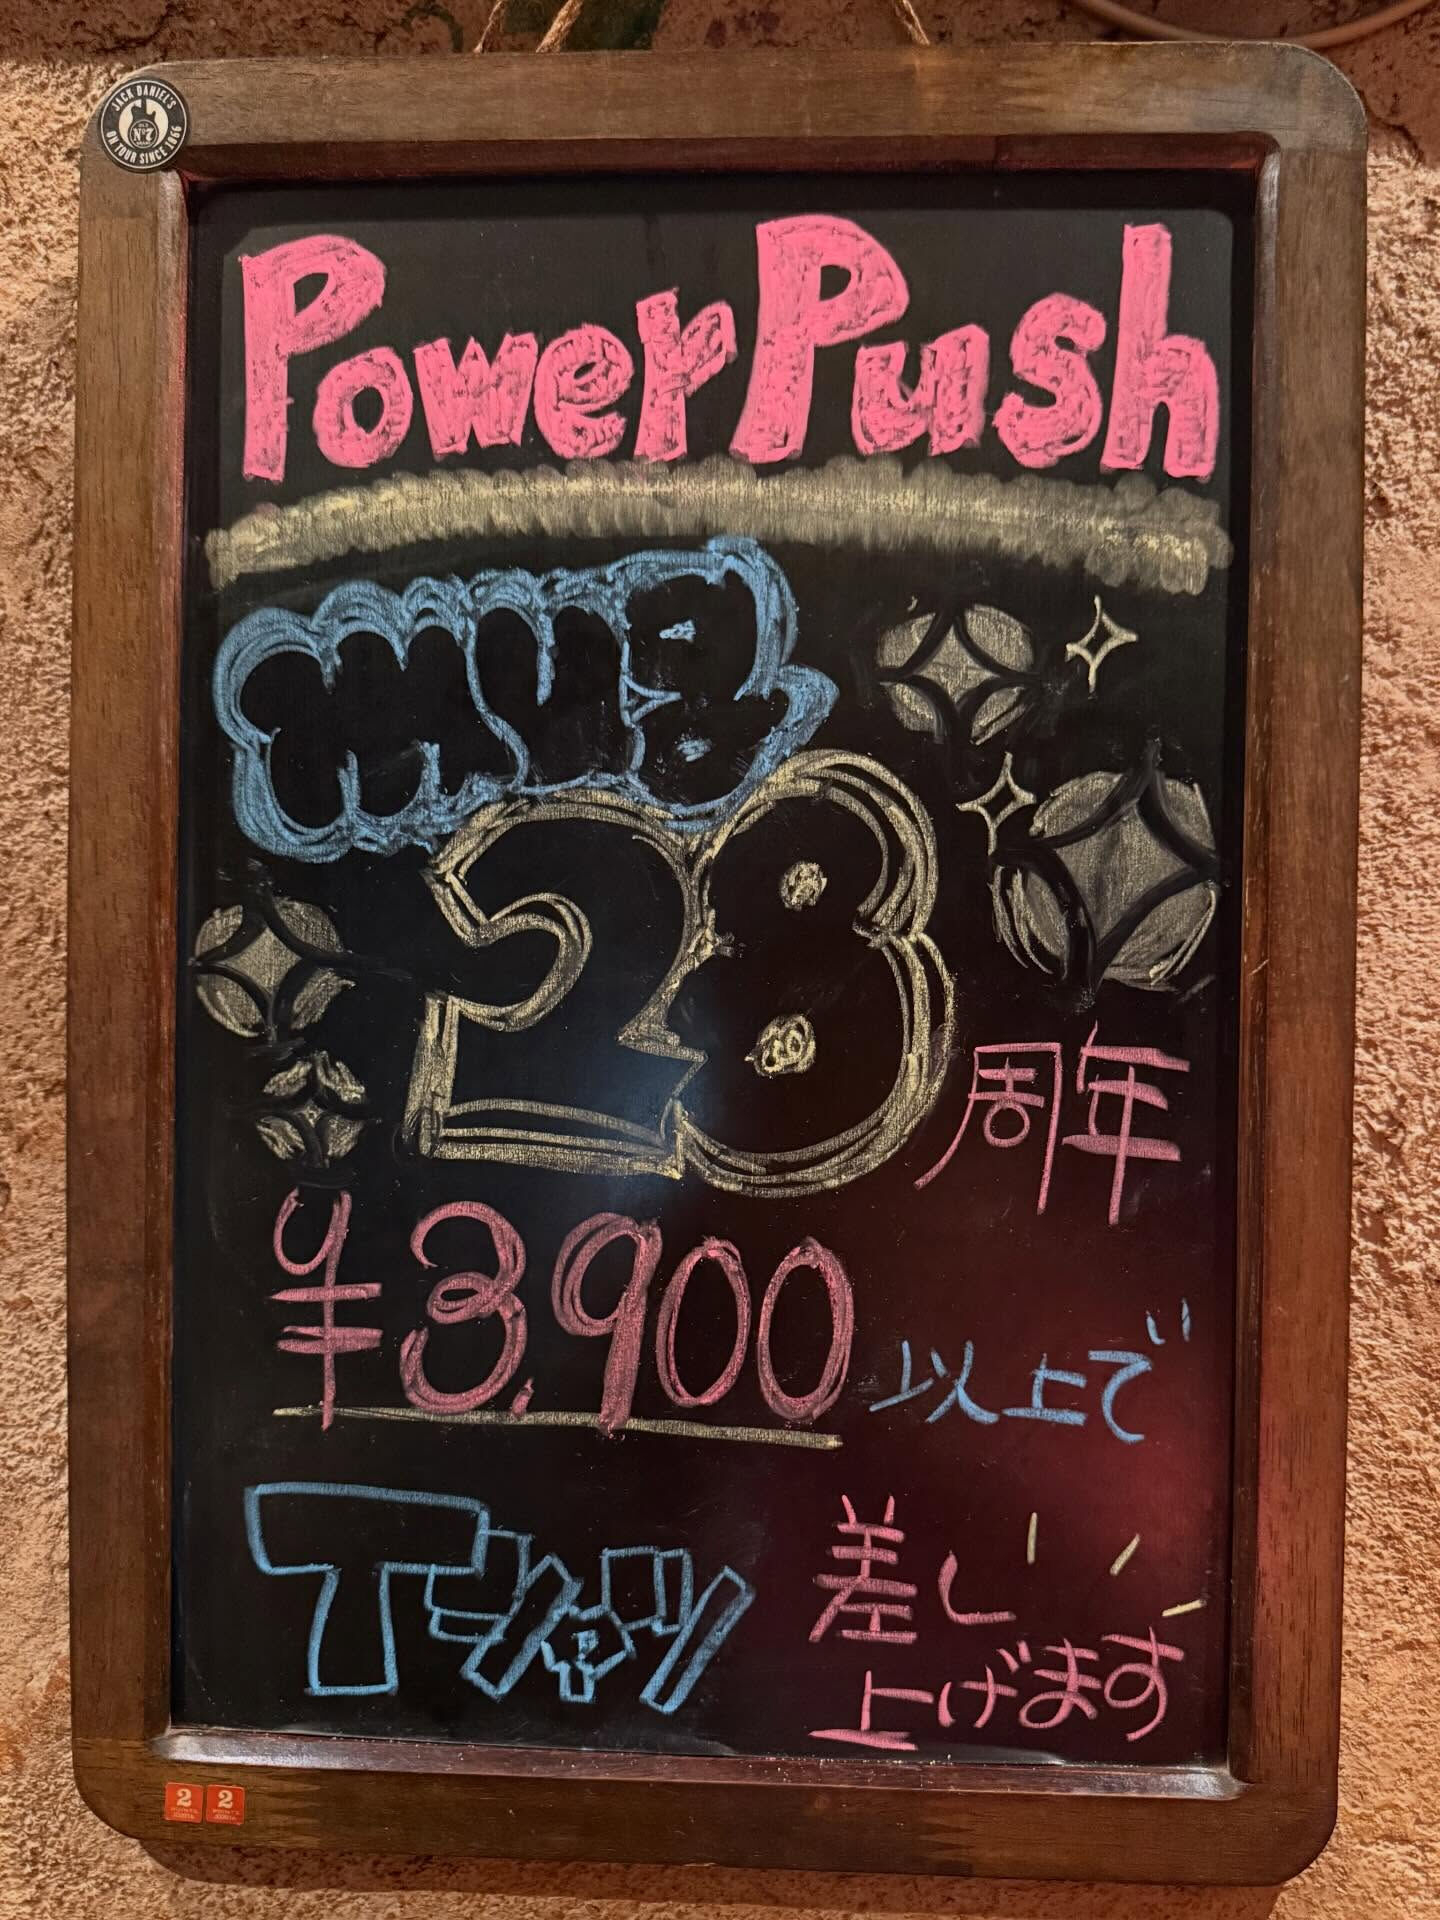 JACK DANIEL'S
OLD
Nº7
ON TOUR SINCE 1866
Power Push
mug
28周年
¥3,900以上で
Tシャツ 差し
上げます
2 2
POINTS POINTS